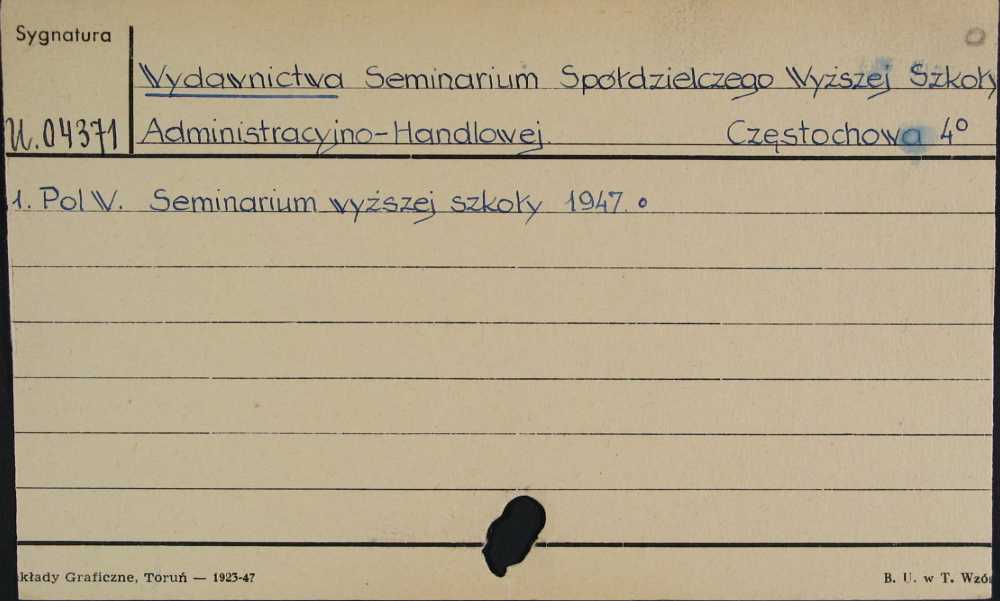 Sygnatura
Wydawnictwa Seminarium Spółdzielczego Wyższej Szkoły
U.04371 Administracyjno-Handlowej. Częstochowa 4°
1. Pol W. Seminarium wyższej szkoły 1947.
kłady Graficzne, Toruń — 1923-47
B. U. w T. Wzór